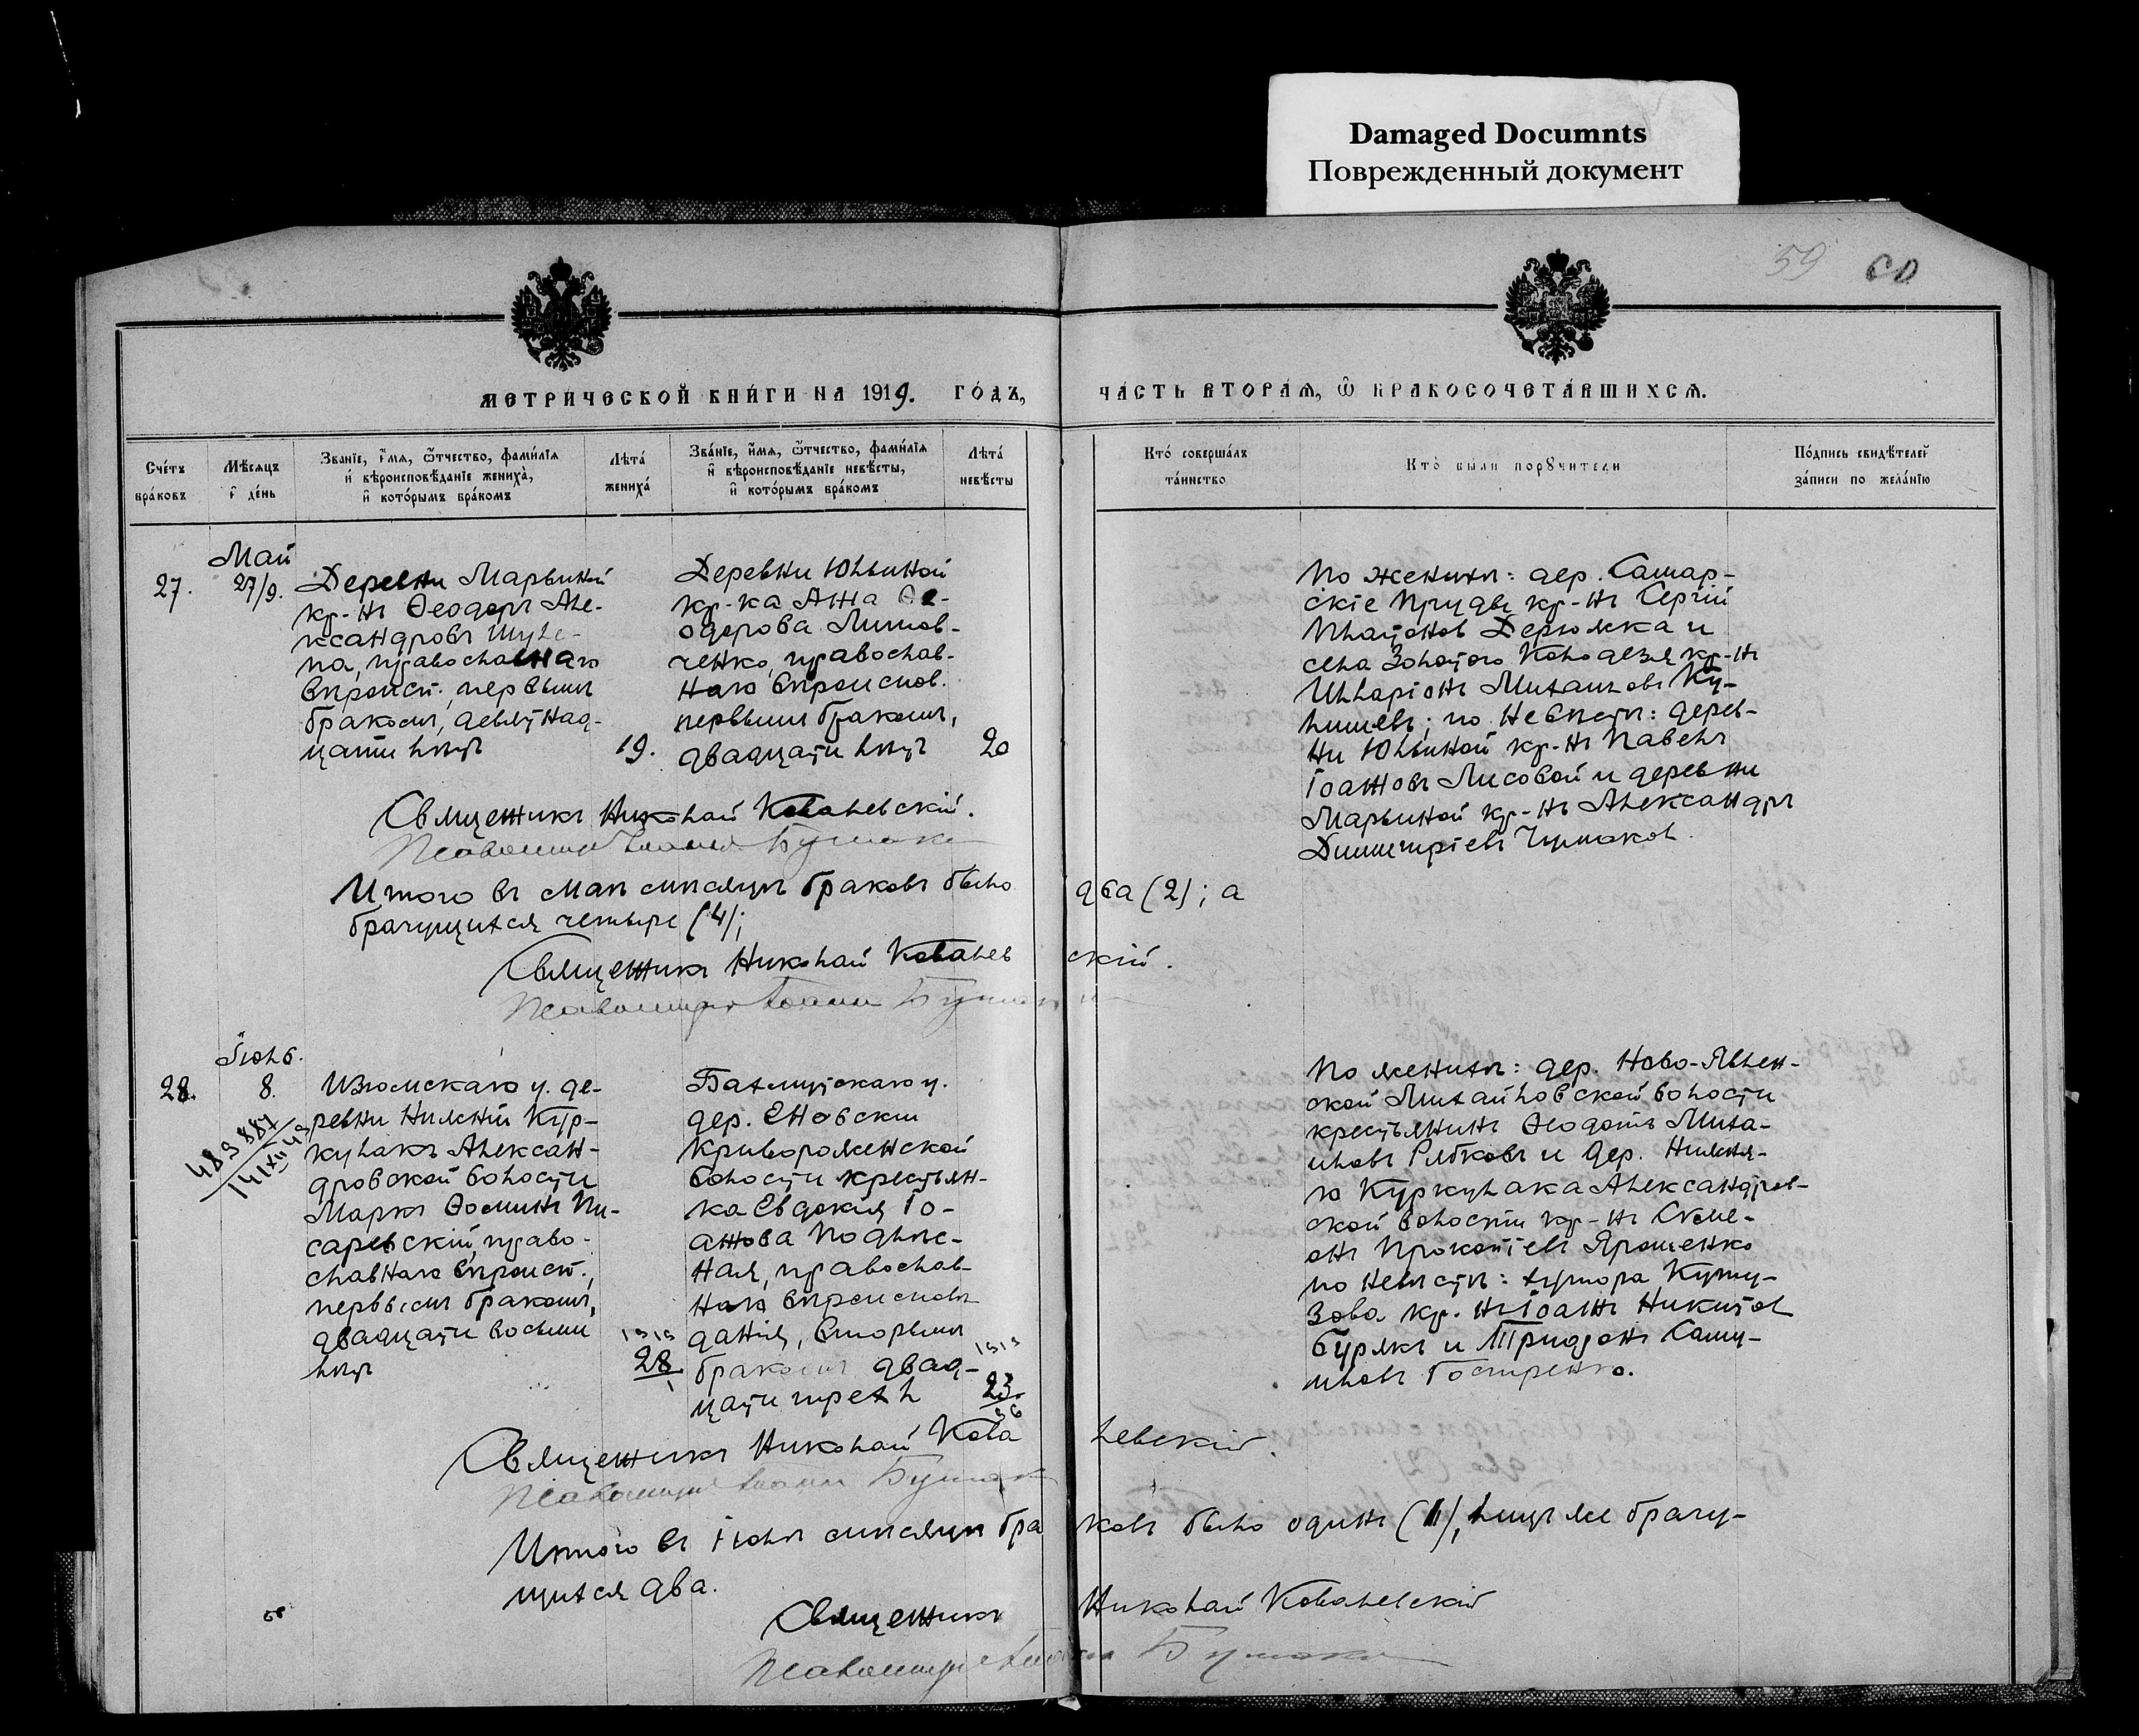 Damaged Documnts
Поврежденный документ
59
МЕТРИЧЕСКОЙ КНИГИ НА 1919. ГОДЪ,
ЧАСТЬ ВТОРАЯ, Ѡ БРАКОСОЧЕТАВШИХСЯ.
Счетъ браковъ
Мѣсяцъ и день
Званіе, имя, ѿтчество, фамилія
и вѣроисповѣданіе жениха,
и которымъ бракомъ
Лѣта жениха
Званіе, имя, ѿтчество, фамилія
и вѣроисповѣданіе невѣсты,
и которымъ бракомъ
Лѣта невѣсты
Кто совершалъ таинство
Кто были поручители
Подпись свидѣтелей
записи по желанію
27.
Май
27/9.
Деревни Марьиной
кр-нъ Ѳеодоръ Але-
ксандровъ Шуле-
па, православнаго
вѣроисп. первымъ
бракомъ, девятнад-
цати лѣтъ
19.
Деревни Юльиной
кр-ка Анна Ѳе-
одорова Литов-
ченко, православ-
наго вѣроиспов.
первымъ бракомъ,
двадцати лѣтъ
20
По женихѣ: дер. Самар-
скіе Пруды кр-нъ Сергій
Платоновъ Дерюжка и
села Золотого Колодезя кр-нъ
Илларіонъ Михаиловъ Ку-
лишевъ; по невѣстѣ: дерев-
ни Юльиной кр-нъ Павелъ
Іоанновъ Лисовой и деревни
Марьиной кр-нъ Александръ
Димитріевъ Чумаковъ.
Священникъ Николай Ковалевскій.
Псаломщикъ Іоаннъ
Итого въ маѣ мѣсяцѣ браковъ было два (2); а
брачущихся четыре (4);
Священникъ Николай Ковалевскій.
Псаломщикъ Іоаннъ
28.
Іюнь.
8.
489887
14/XII 43
Изюмскаго у. де-
ревни Нижній Кур-
кулакъ Алексан-
дровской волости
Маркъ Ѳоминъ Пи-
саревскій, право-
славнаго вѣроисп.,
первымъ бракомъ,
двадцати восьми
лѣтъ
1919
28
Бахмутскаго у.
дер. Еновски
Криворожской
волости крестьян-
ка Евдокія Іо-
аннова Подлѣс-
ная, православ-
наго вѣроисповѣ-
данія, вторымъ
бракомъ двад-
цати трехъ л
1919
23.
96
По женихѣ: дер. Ново-Явлен-
ской Михайловской волости
крестьянинъ Ѳеодотъ Миха-
иловъ Рябковъ и дер. Нижня-
го Куркулака Александров-
ской волости кр-нъ Симе-
онъ Прокопіевъ Ярошенко
по невѣстѣ: хутора Куту-
зова кр. нъ Іоаннъ Никитовъ
Бурякъ и Спиридонъ Саму-
иловъ Гостренко.
Священникъ Николай Ковалевскій.
Псаломщикъ Іоаннъ
Итого въ іюнѣ мѣсяцѣ браковъ было одинъ (1), лицъ же брачу-
щихся два.
Священникъ Николай Ковалевскій
Псаломщикъ Іоаннъ